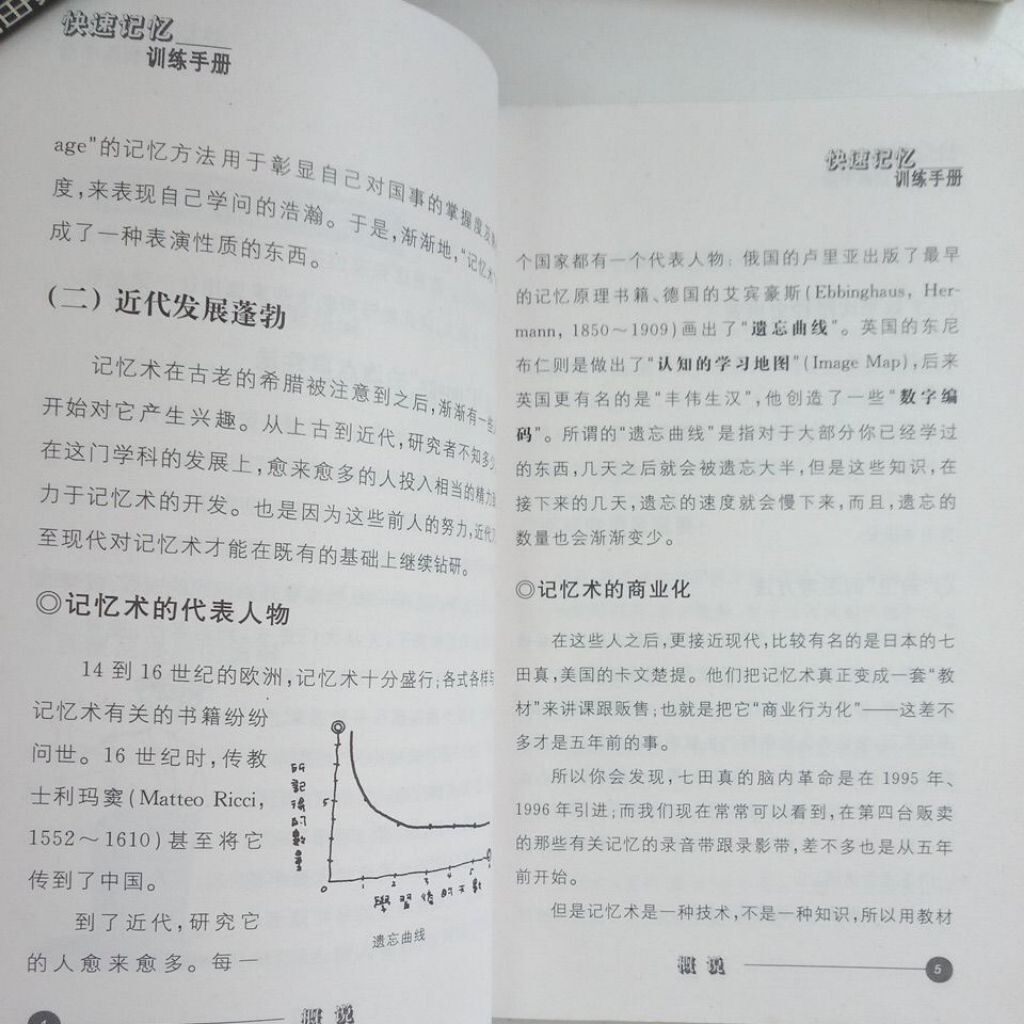 快速记忆
训练手册
age"的记忆方法用于彰显自己对国事的掌握度及
度,来表现自己学问的浩瀚。于是,渐渐地,“记忆术
成了一种表演性质的东西。
(二) 近代发展蓬勃
记忆术在古老的希腊被注意到之后,渐渐有一些
开始对它产生兴趣。从上古到近代,研究者不知多少
在这门学科的发展上,愈来愈多的人投入相当的精力
力于记忆术的开发。也是因为这些前人的努力,近代
至现代对记忆术才能在既有的基础上继续钻研。
◎记忆术的代表人物
14 到 16 世纪的欧洲,记忆术十分盛行;各式各样与
记忆术有关的书籍纷纷
问世。16 世纪时,传教
士利玛窦(Matteo Ricci,
1552～1610)甚至将它
传到了中国。
到了近代,研究它
的人愈来愈多。每一
所記得的數量
5
0 1 2 3 4 5
學習後的天數
遗忘曲线
概说
快速记忆
训练手册
个国家都有一个代表人物: 俄国的卢里亚出版了最早
的记忆原理书籍、德国的艾宾豪斯(Ebbinghaus, Her-
mann, 1850～1909)画出了“遗忘曲线”。英国的东尼
布仁则是做出了“认知的学习地图”(Image Map),后来
英国更有名的是“丰伟生汉”,他创造了一些“数字编
码”。所谓的“遗忘曲线”是指对于大部分你已经学过
的东西,几天之后就会被遗忘大半,但是这些知识,在
接下来的几天,遗忘的速度就会慢下来,而且,遗忘的
数量也会渐渐变少。
◎记忆术的商业化
在这些人之后,更接近现代,比较有名的是日本的七
田真,美国的卡文楚提。他们把记忆术真正变成一套“教
材”来讲课跟贩售;也就是把它“商业行为化”——这差不
多才是五年前的事。
所以你会发现,七田真的脑内革命是在 1995 年、
1996 年引进;而我们现在常常可以看到,在第四台贩卖
的那些有关记忆的录音带跟录影带,差不多也是从五年
前开始。
但是记忆术是一种技术,不是一种知识,所以用教材
概说
5